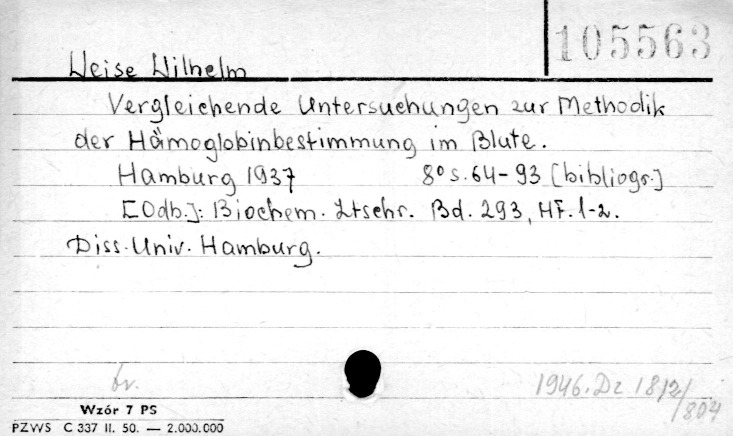 105563
Weise Wilhelm
Vergleichende Untersuchungen zur Methodik
der Hämoglobinbestimmung im Blute.
Hamburg 1937 8° s. 64-93 [bibliogr.]
[Odb.]: Biochem. Ztschr. Bd. 293, Hf. 1-2.
Diss. Univ. Hamburg.
br.
1946. Dz 1812/804
Wzór 7 PS
PZWS C 337 II. 50. — 2.000.000